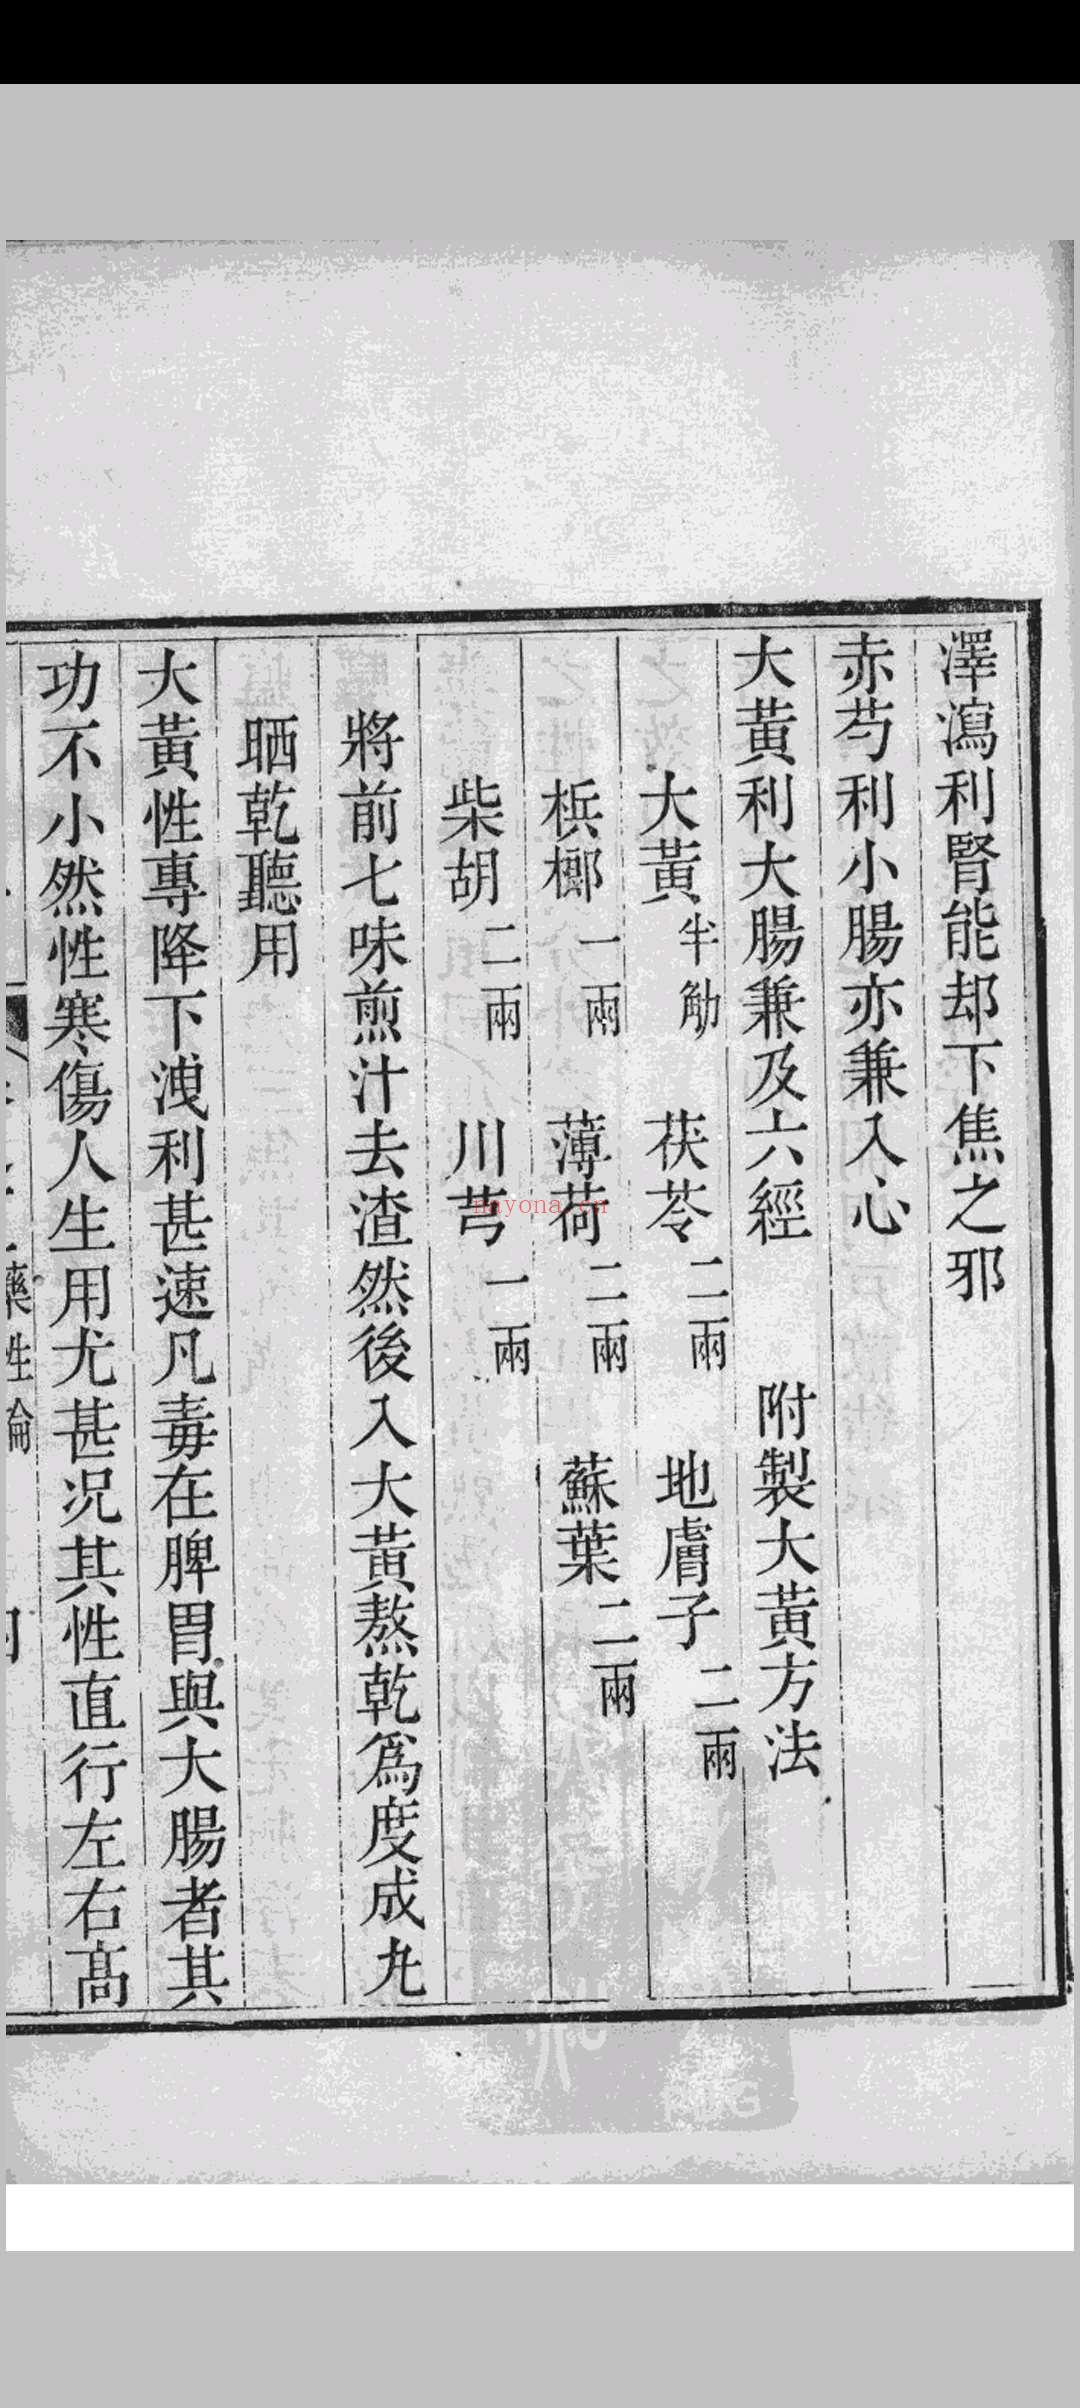 澤瀉利腎能却下焦之邪
赤芍利小腸亦兼入心
大黃利大腸兼及六經 附製大黃方法
大黃半觔 茯苓二兩 地膚子二兩
梹榔一兩 薄荷二兩 蘇葉二兩
柴胡二兩 川芎一兩
將前七味煎汁去渣然後入大黃熬乾爲度成九
晒乾聽用
大黃性專降下洩利甚速凡毒在脾胃與大腸者其
功不小然性寒傷人生用尤甚况其性直行左右髙
藥性論
nayona.cn